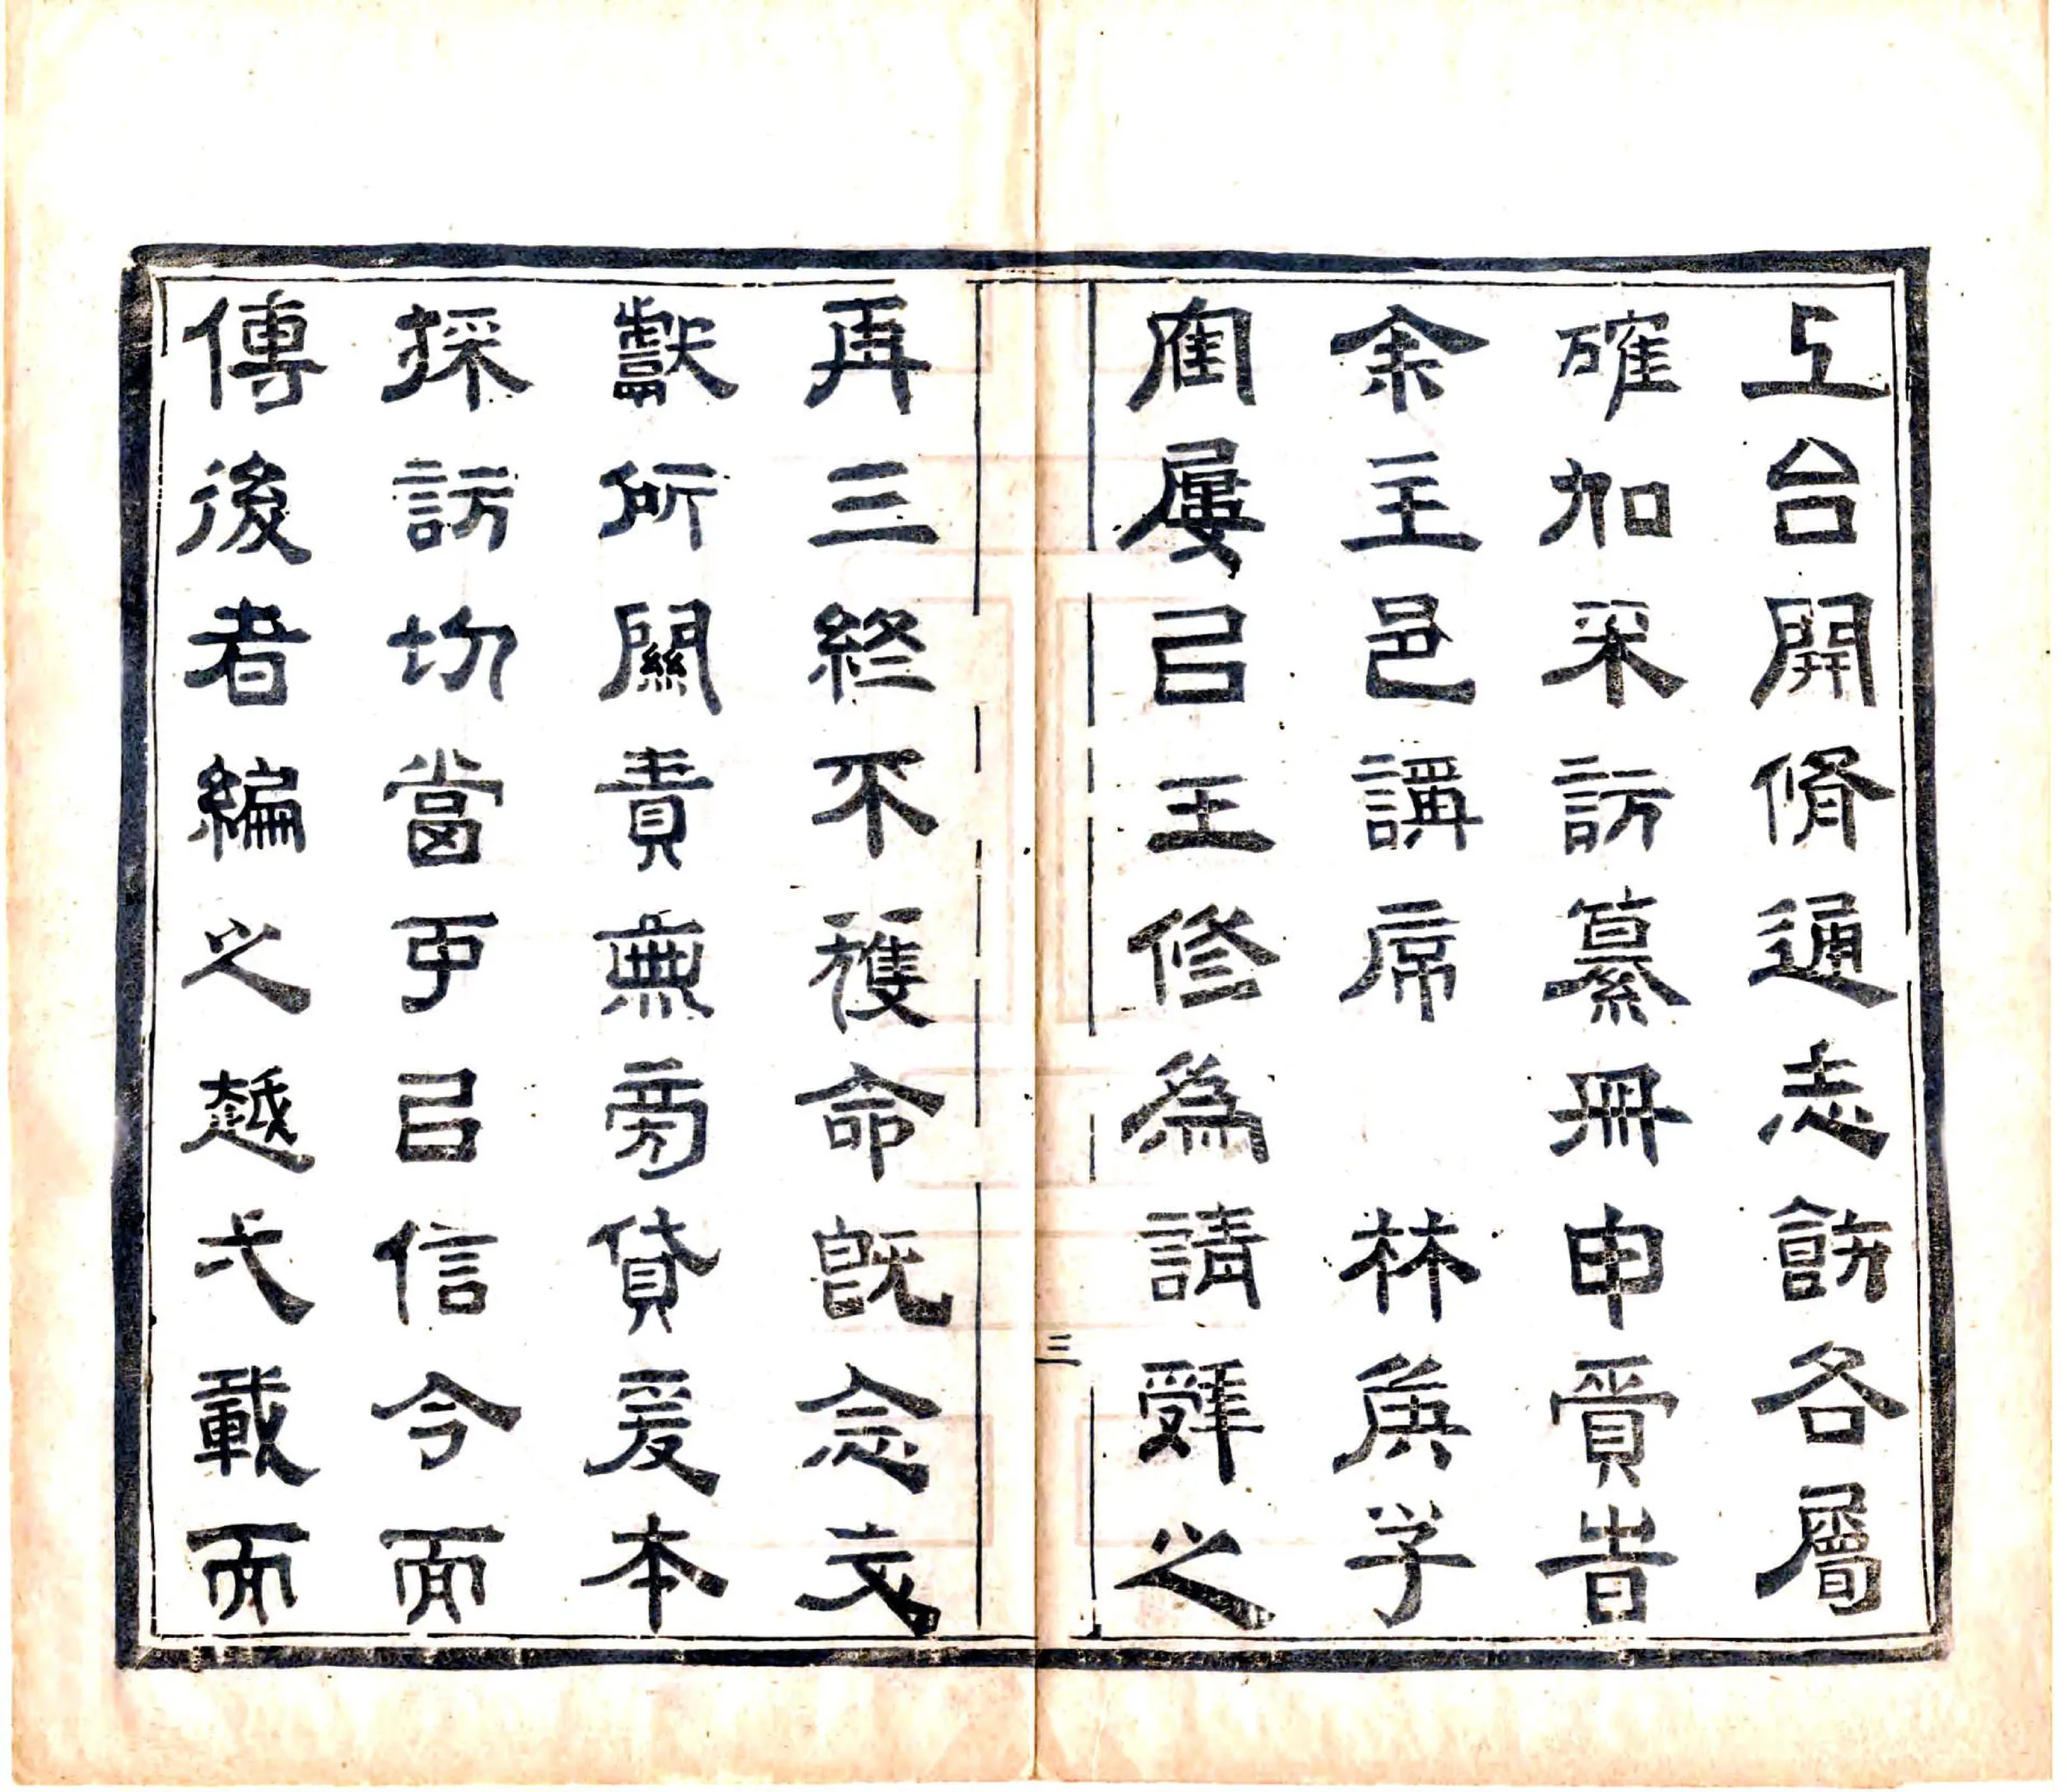 上台開脩通志飭各屬
確加采訪纂冊申賫旹
余主邑講席　林矦学
屢㠯王修為請辭之
三
再三終不獲命既念文
獻所關責無旁貸爰本
採訪切當可㠯信今而
傳後者編之越弌載而